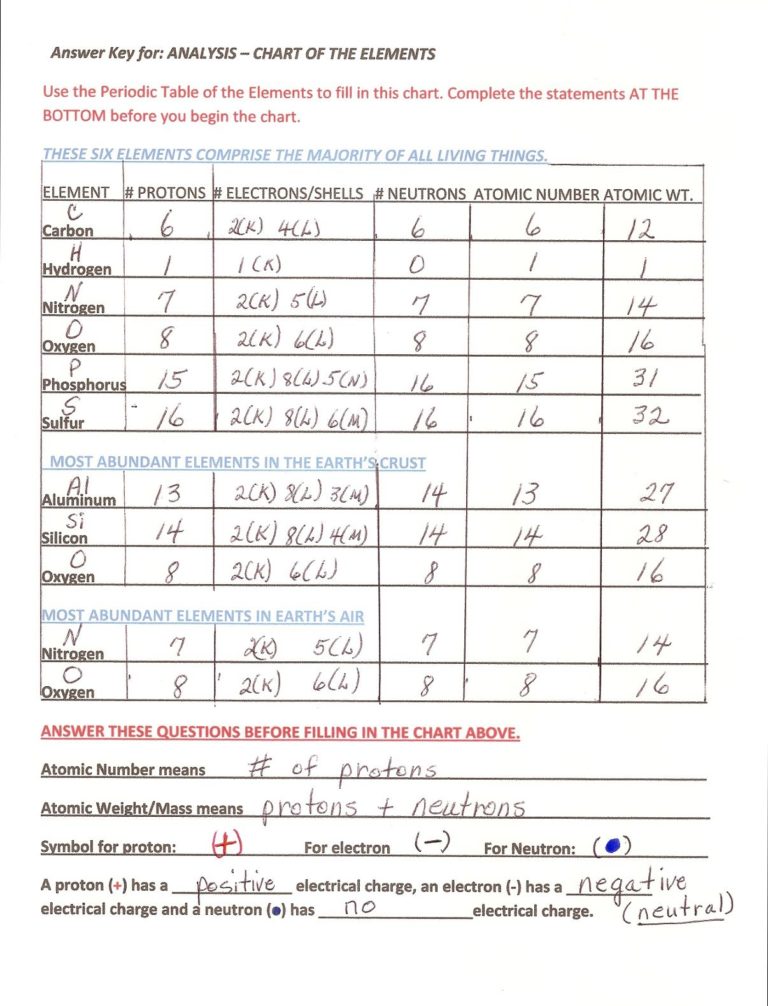 Answer Key for: ANALYSIS – CHART OF THE ELEMENTS
Use the Periodic Table of the Elements to fill in this chart. Complete the statements AT THE
BOTTOM before you begin the chart.
THESE SIX ELEMENTS COMPRISE THE MAJORITY OF ALL LIVING THINGS.
ELEMENT # PROTONS # ELECTRONS/SHELLS # NEUTRONS ATOMIC NUMBER ATOMIC WT.
C
Carbon 6 2(K) 4(L) 6 6 12
H
Hydrogen 1 1(K) 0 1 1
N
Nitrogen 7 2(K) 5(L) 7 7 14
O
Oxygen 8 2(K) 6(L) 8 8 16
P
Phosphorus 15 2(K) 8(L) 5(N) 16 15 31
S
Sulfur 16 2(K) 8(L) 6(M) 16 16 32
MOST ABUNDANT ELEMENTS IN THE EARTH'S CRUST
Al
Aluminum 13 2(K) 8(L) 3(M) 14 13 27
Si
Silicon 14 2(K) 8(L) 4(M) 14 14 28
O
Oxygen 8 2(K) 6(L) 8 8 16
MOST ABUNDANT ELEMENTS IN EARTH'S AIR
N
Nitrogen 7 2(K) 5(L) 7 7 14
O
Oxygen 8 2(K) 6(L) 8 8 16
ANSWER THESE QUESTIONS BEFORE FILLING IN THE CHART ABOVE.
Atomic Number means # of protons
Atomic Weight/Mass means protons + neutrons
Symbol for proton: (+) For electron (-) For Neutron: (●)
A proton (+) has a positive electrical charge, an electron (-) has a negative
electrical charge and a neutron (●) has no electrical charge. (neutral)